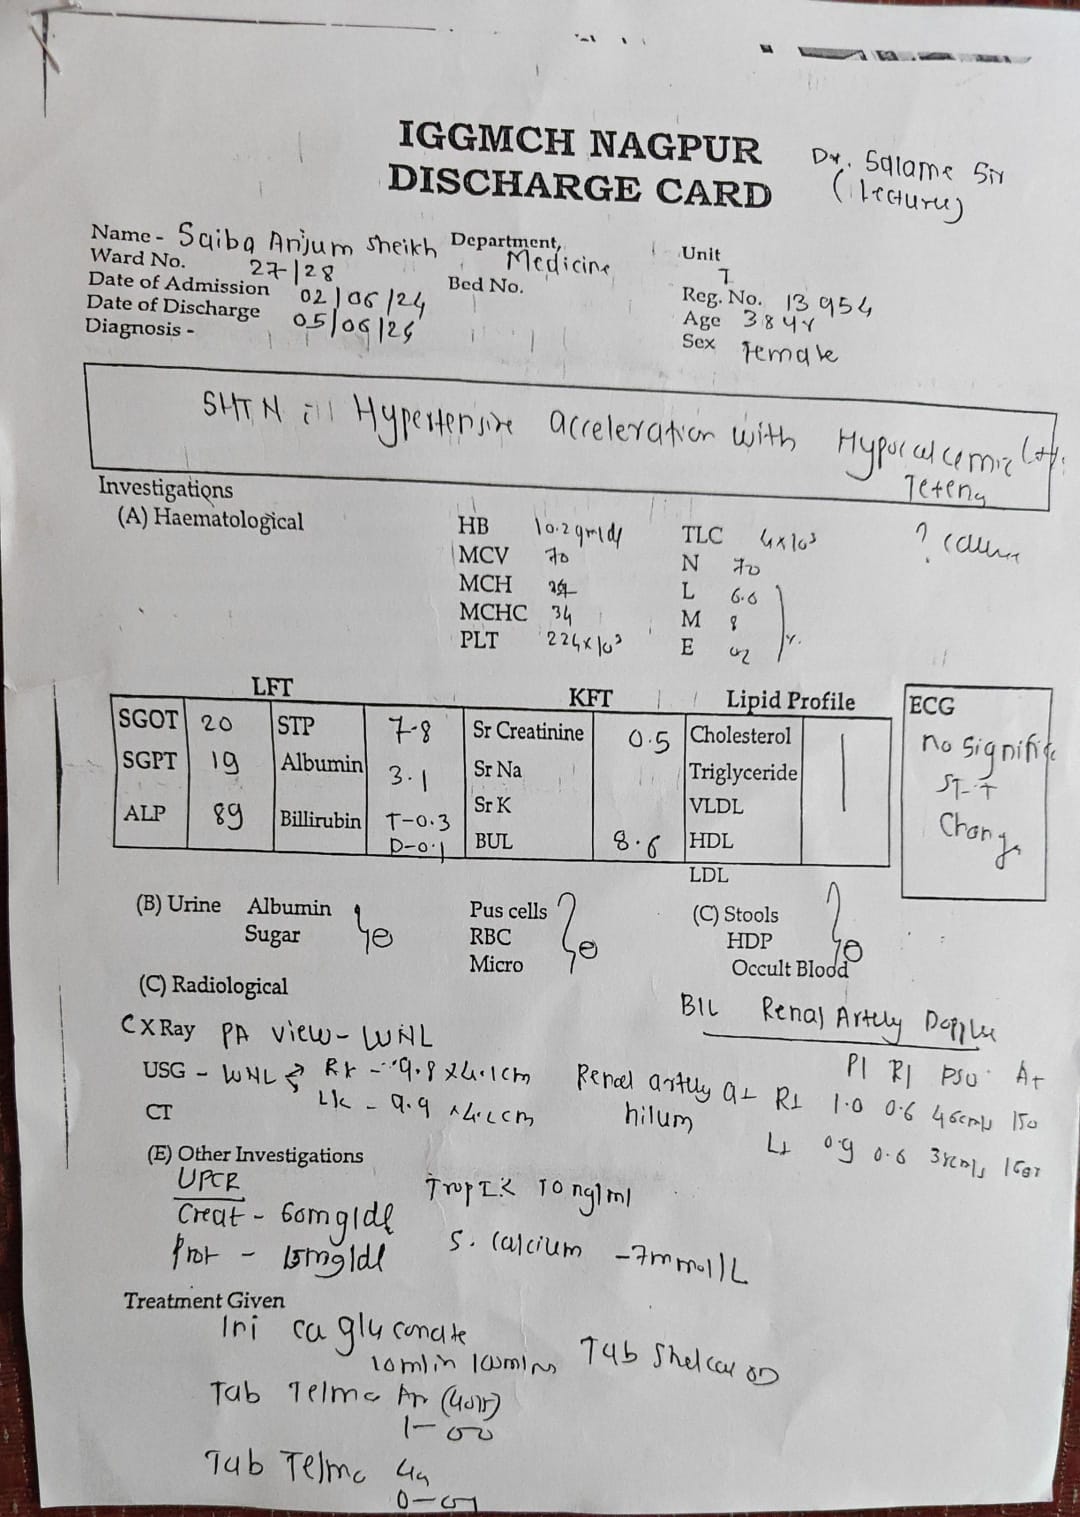 IGGMCH NAGPUR
DISCHARGE CARD
Dr. Salame Sir
(Lecturer)
Name - Saiba Anjum Sheikh Department, Medicine Unit I
Ward No. 27/28 Bed No. Reg. No. 13954
Date of Admission 02/06/24 Age 38 yr
Date of Discharge 05/06/24 Sex Female
Diagnosis -
SHTN Hypertensive acceleration with Hypocalcemic
Teteny
? cause
Investigations
(A) Haematological
HB 10.2 gm/dl TLC 4x10³
MCV 70 N 70
MCH L 6.6
MCHC 34 M 8
PLT 224x10³ E 02 %
LFT KFT Lipid Profile ECG
SGOT 20 STP 7.8 Sr Creatinine 0.5 Cholesterol
SGPT 19 Albumin 3.1 Sr Na Triglyceride
ALP 89 Billirubin T-0.3 Sr K VLDL
D-0.1 BUL 8.6 HDL
LDL
No signific
ST-T
Change
(B) Urine Albumin Pus cells (C) Stools
Sugar RBC HDP
Micro Occult Blood
(C) Radiological
CXRay PA view - WNL
B/L Renal Artery Doppler
USG - WNL Rk - 9.8 x 4.1cm
Lk - 9.9 cm
CT
Renal artery at hilum
PI RI PSV AT
Rt 1.0 0.6 46cm/s 150
Lt 0.9 0.6
(E) Other Investigations
UPCR
Creat - 60mg/dl
Prot - 15mg/dl
Trop I < 10 ng/ml
S. Calcium - 7mmol/L
Treatment Given
Inj ca gluconate
10ml in 100ml NS
Tab Shelcal OD
Tab Telma
Tab Telma